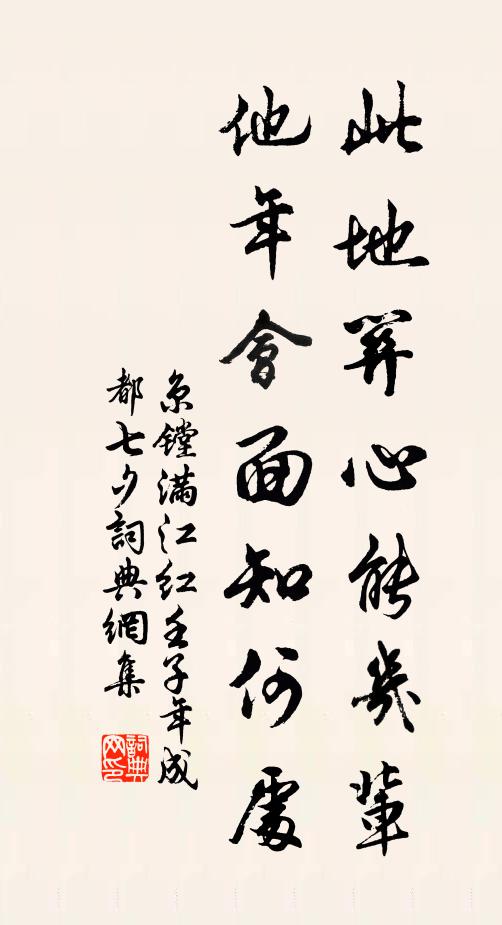 此地關心能幾輩
他年會面知何處
京鏜滿江紅壬子年成
都七夕詞典網集
詞典網印